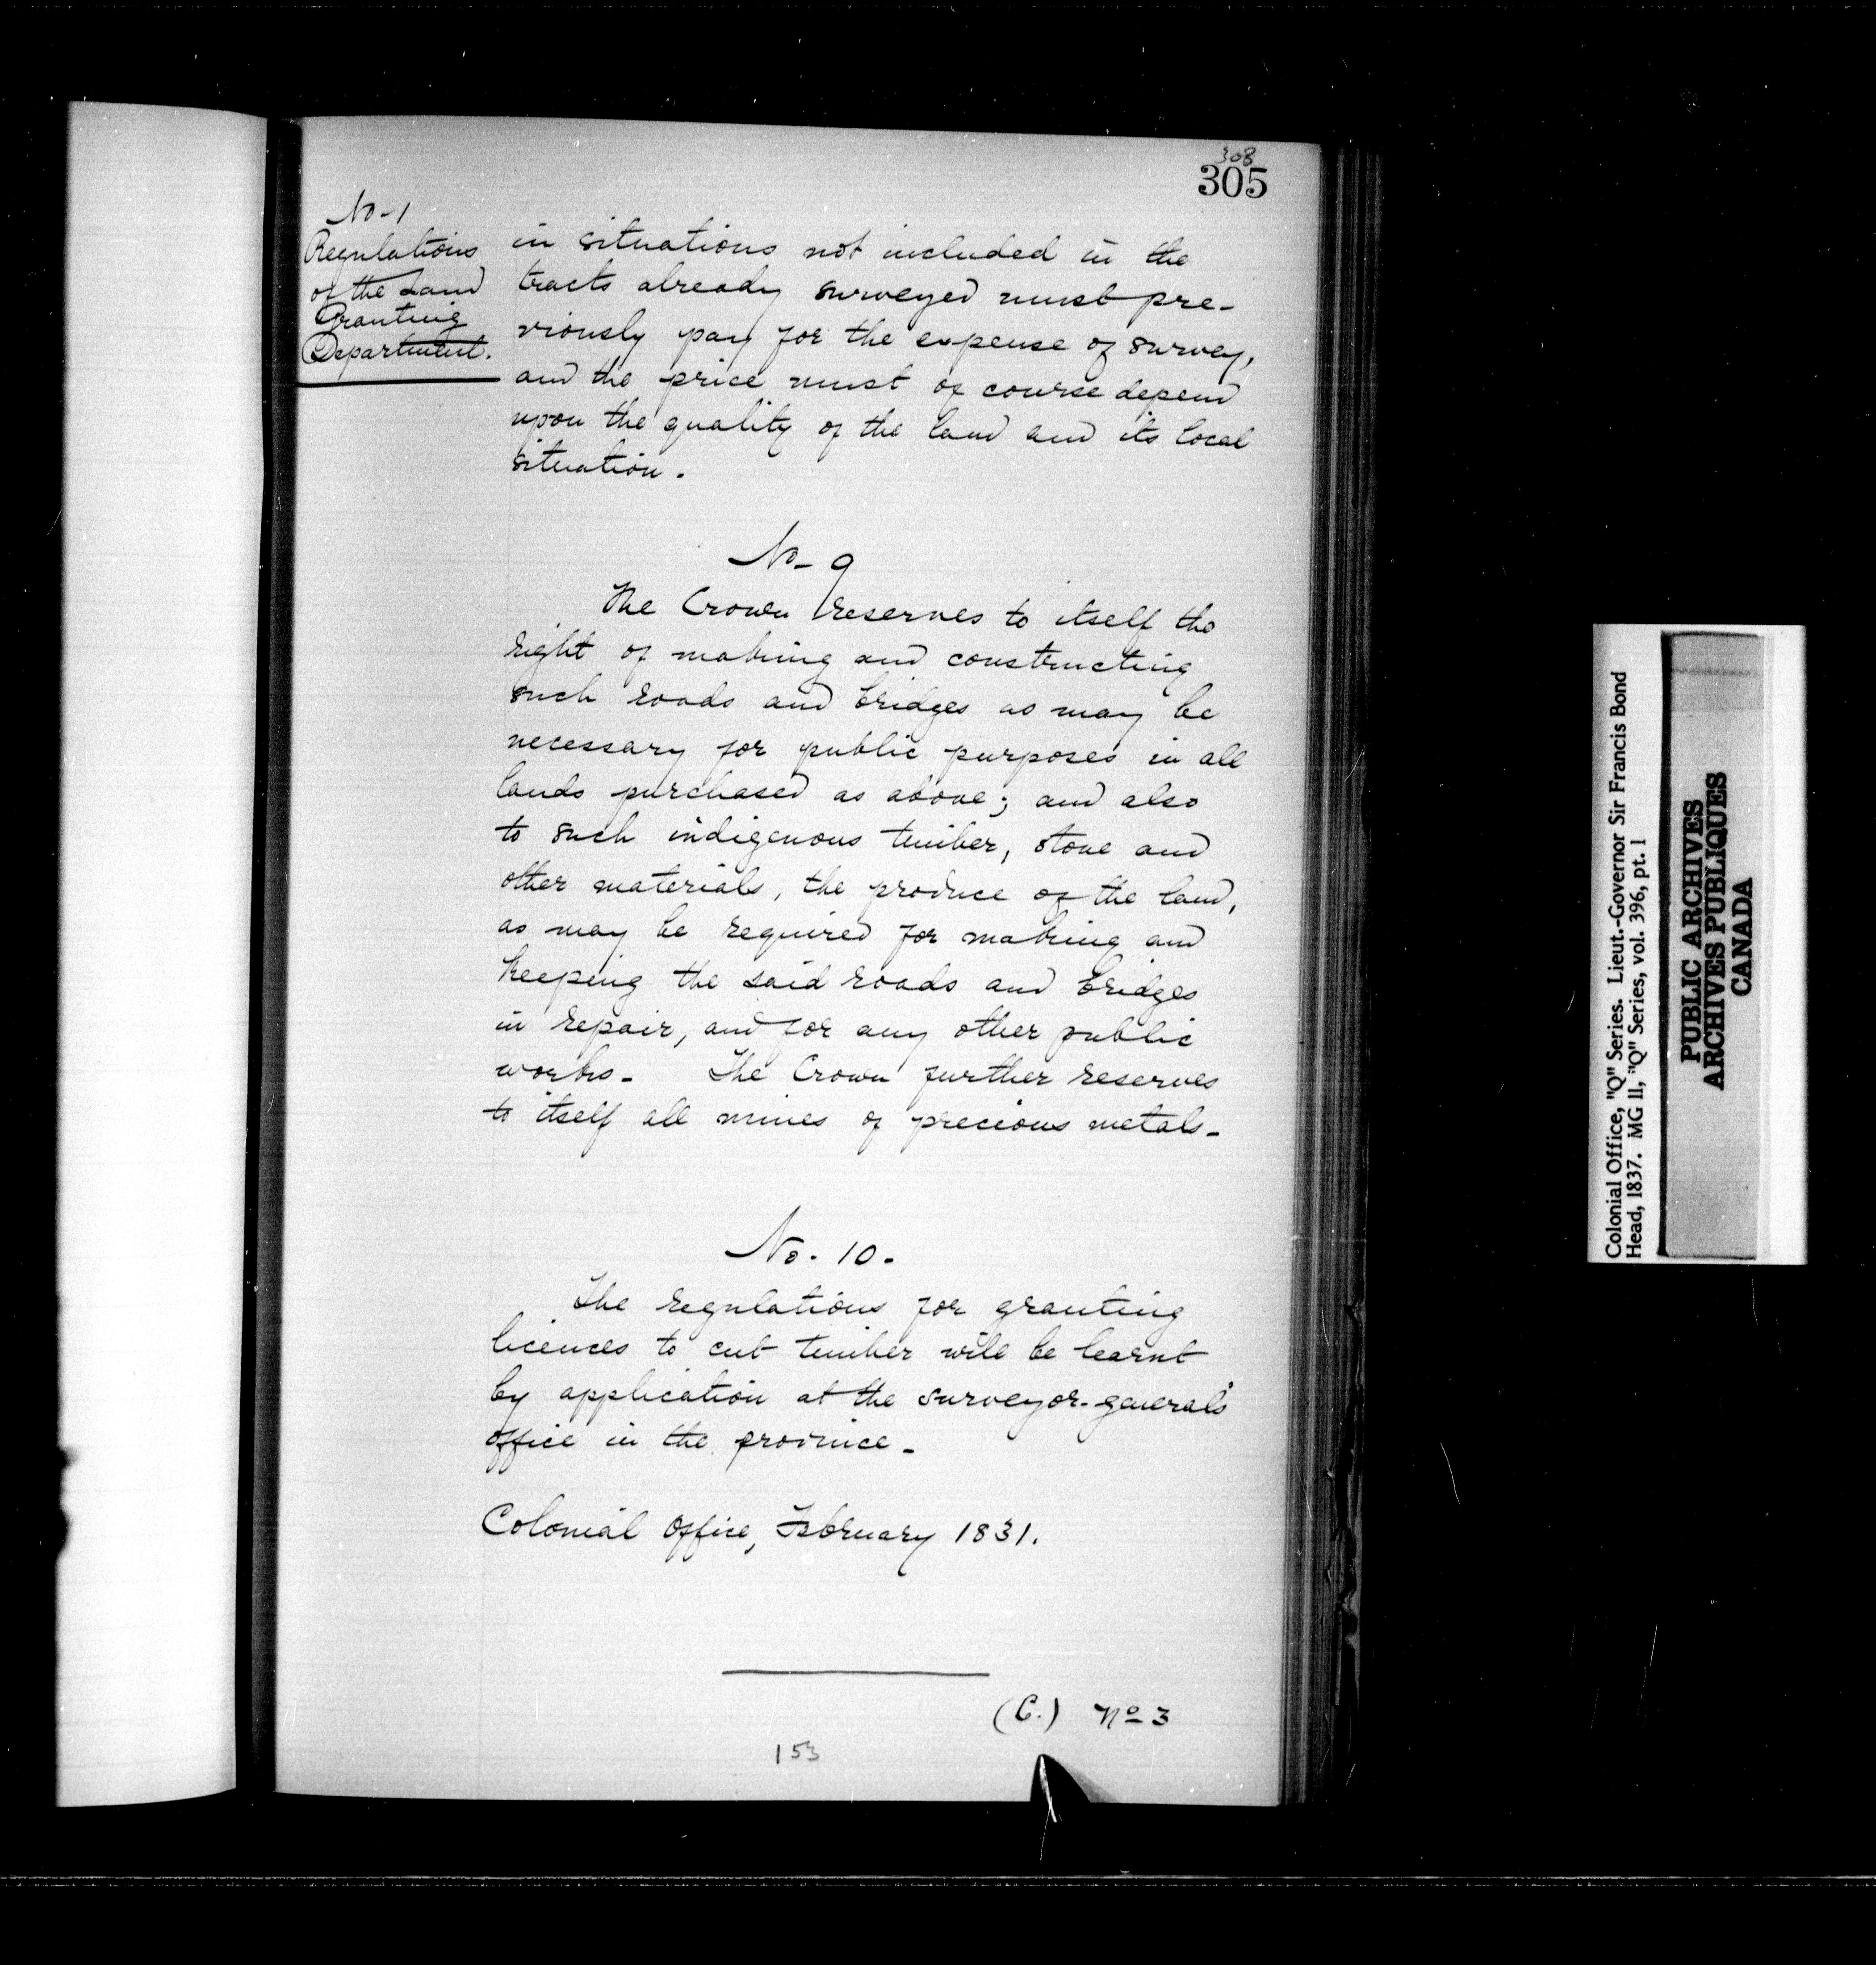 308
305
No-1
Regulations
of the Land
Granting
Department.
in situations not included in the
tracts already surveyed must pre-
viously pay for the expense of survey,
and the price must of course depend
upon the quality of the land and its local
situation.
No- 9
The Crown reserves to itself the
right of making and constructing
such roads and bridges as may be
necessary for public purposes in all
lands purchased as above; and also
to such indigenous timber, stone and
other materials, the produce of the land,
as may be required for making and
keeping the said roads and bridges
in repair, and for any other public
works- The Crown further reserves
to itself all mines of precious metals-
No. 10-
The regulations for granting
licences to cut timber will be learnt
by application at the surveyor-general's
office in the province-
Colonial Office, February 1831.
(C.) No 3
153
Colonial Office, "Q" Series. Lieut.-Governor Sir Francis Bond
Head, 1837. MG 11, "Q" Series, vol. 396, pt. 1
PUBLIC ARCHIVES
ARCHIVES PUBLIQUES
CANADA